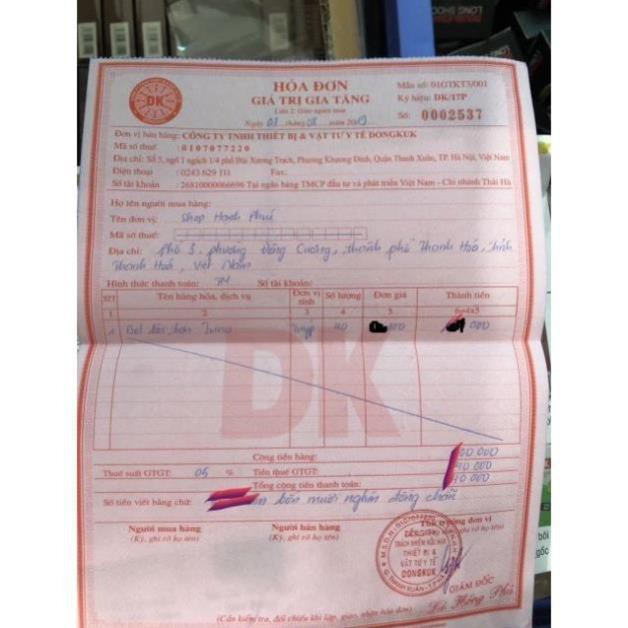 DK
HÓA ĐƠN
GIÁ TRỊ GIA TĂNG
Liên 2: Giao người mua
Ngày 01 tháng 08 năm 2019
Mẫu số: 01GTKT3/001
Ký hiệu: DK/17P
Số: 0002537
Đơn vị bán hàng: CÔNG TY TNHH THIẾT BỊ & VẬT TƯ Y TẾ DONGKUK
Mã số thuế : 0107077220
Địa chỉ: Số 5, ngõ 1 ngách 1/4 phố Bùi Xương Trạch, Phường Khương Đình, Quận Thanh Xuân, TP. Hà Nội, Việt Nam
Điện thoại : 0243 629 111 Fax:
Số tài khoản : 26810000066696 Tại ngân hàng TMCP đầu tư và phát triển Việt Nam - Chi nhánh Thái Hà
Họ tên người mua hàng:
Tên đơn vị: Shop Hạnh Phúc
Mã số thuế:
Địa chỉ: Phố 3, phường Đông Cương, thành phố Thanh Hoá, tỉnh
Thanh Hoá, Việt Nam
Hình thức thanh toán: TM Số tài khoản:
STT Tên hàng hóa, dịch vụ Đơn vị tính Số lượng Đơn giá Thành tiền
1 2 3 4 5 6=4x5
1 40 000
DK
Cộng tiền hàng: 00 000
Thuế suất GTGT: 05 % Tiền thuế GTGT: 40 000
Tổng cộng tiền thanh toán: 40 000
Số tiền viết bằng chữ: bốn mươi nghìn đồng chẵn
Người mua hàng
(Ký, ghi rõ họ tên)
Người bán hàng
(Ký, ghi rõ họ tên)
Thủ trưởng đơn vị
TRÁCH NHIỆM HỮU HẠN
THIẾT BỊ &
VẬT TƯ Y TẾ
DONGKUK
GIÁM ĐỐC
(Cần kiểm tra, đối chiếu khi lập, giao, nhận hóa đơn)